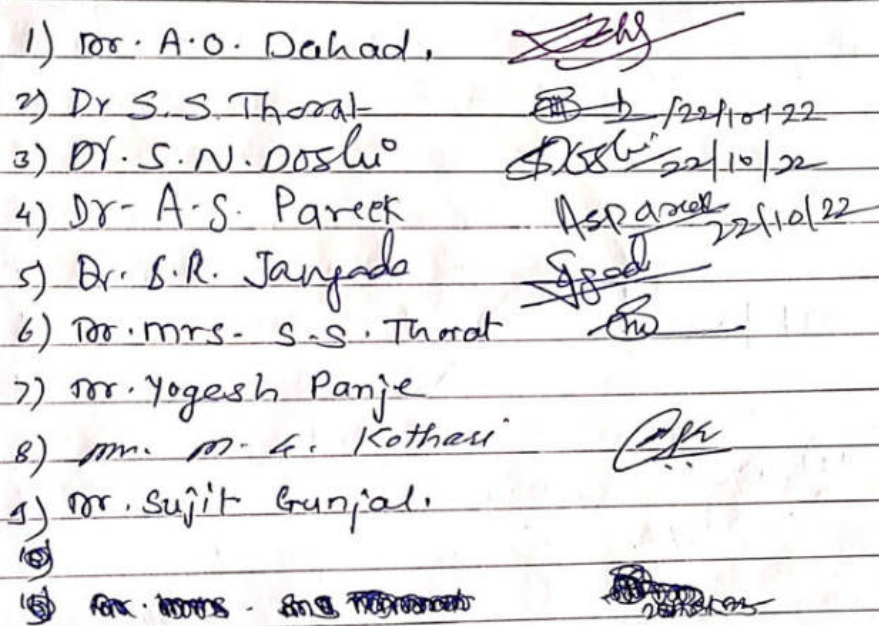 1) Dr. A.O. Dahad.
2) Dr S.S. Thorat /22/10/22
3) Dr. S. N. Doshi Doshi 22/10/22
4) Dr- A.S. Pareek Aspareek 22/10/22
5) Dr. B.R. Jangada
6) Dr. mrs- S.S. Thorat
7) Dr. Yogesh Panje
8) Mr. M. G. Kothari
9) Dr. Sujit Gunjal.